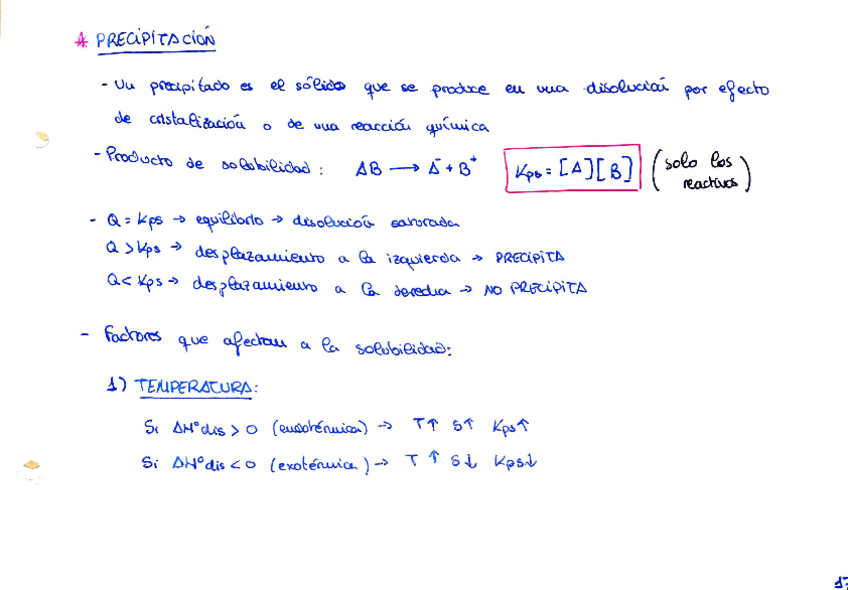 * PRECIPITACIÓN
- Un precipitado es el sólido que se produce en una disolución por efecto
de cristalización o de una reacción química
- Producto de solubilidad: AB → A⁻ + B⁺ Kps = [A][B] (solo los reactivos)
- Q = Kps → equilibrio → disolución saturada
Q > Kps → desplazamiento a la izquierda → PRECIPITA
Q < Kps → desplazamiento a la derecha → NO PRECIPITA
- Factores que afectan a la solubilidad:
1) TEMPERATURA:
Si ΔHºdis > 0 (endotérmica) → T↑ S↑ Kps↑
Si ΔHºdis < 0 (exotérmica) → T↑ S↓ Kps↓
17